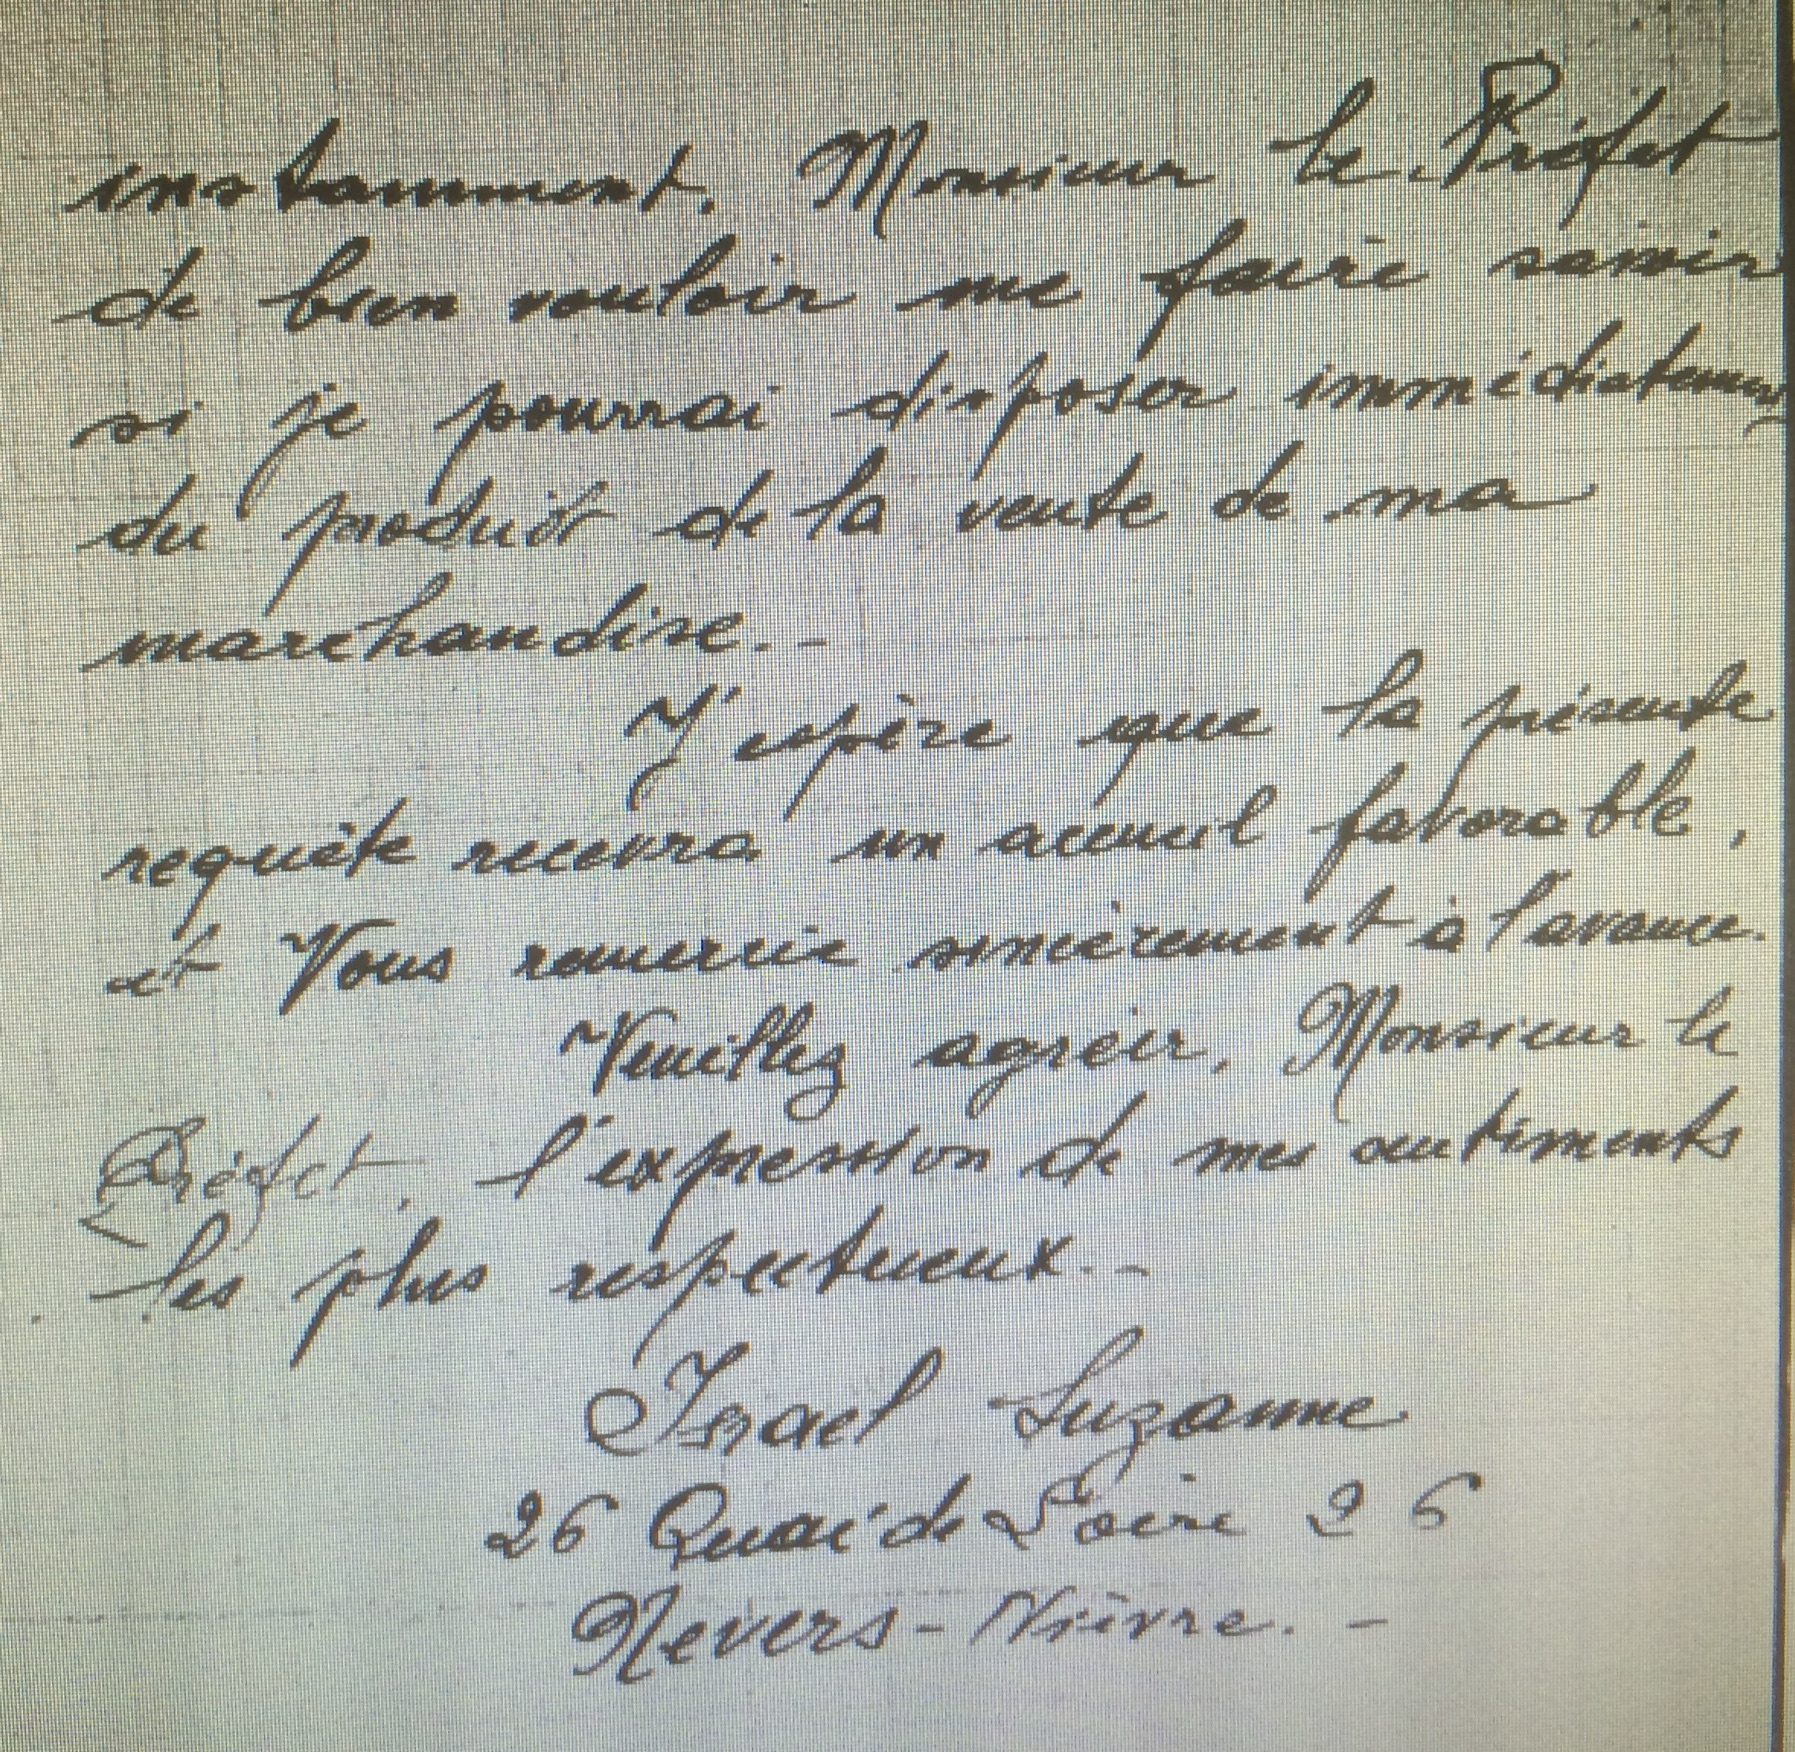 instamment, Monsieur le Préfet
de bien vouloir me faire savoir
si je pourrai disposer immédiatement
du produit de la vente de ma
marchandise.-
J'espère que la présente
requête recevra un accueil favorable,
et Vous remercie sincèrement à l'avance.
Veuillez agréer, Monsieur le
Préfet, l'expression de mes sentiments
les plus respectueux.-
Israel Suzanne
26 Quai de Loire 26
Nevers - Nièvre. -